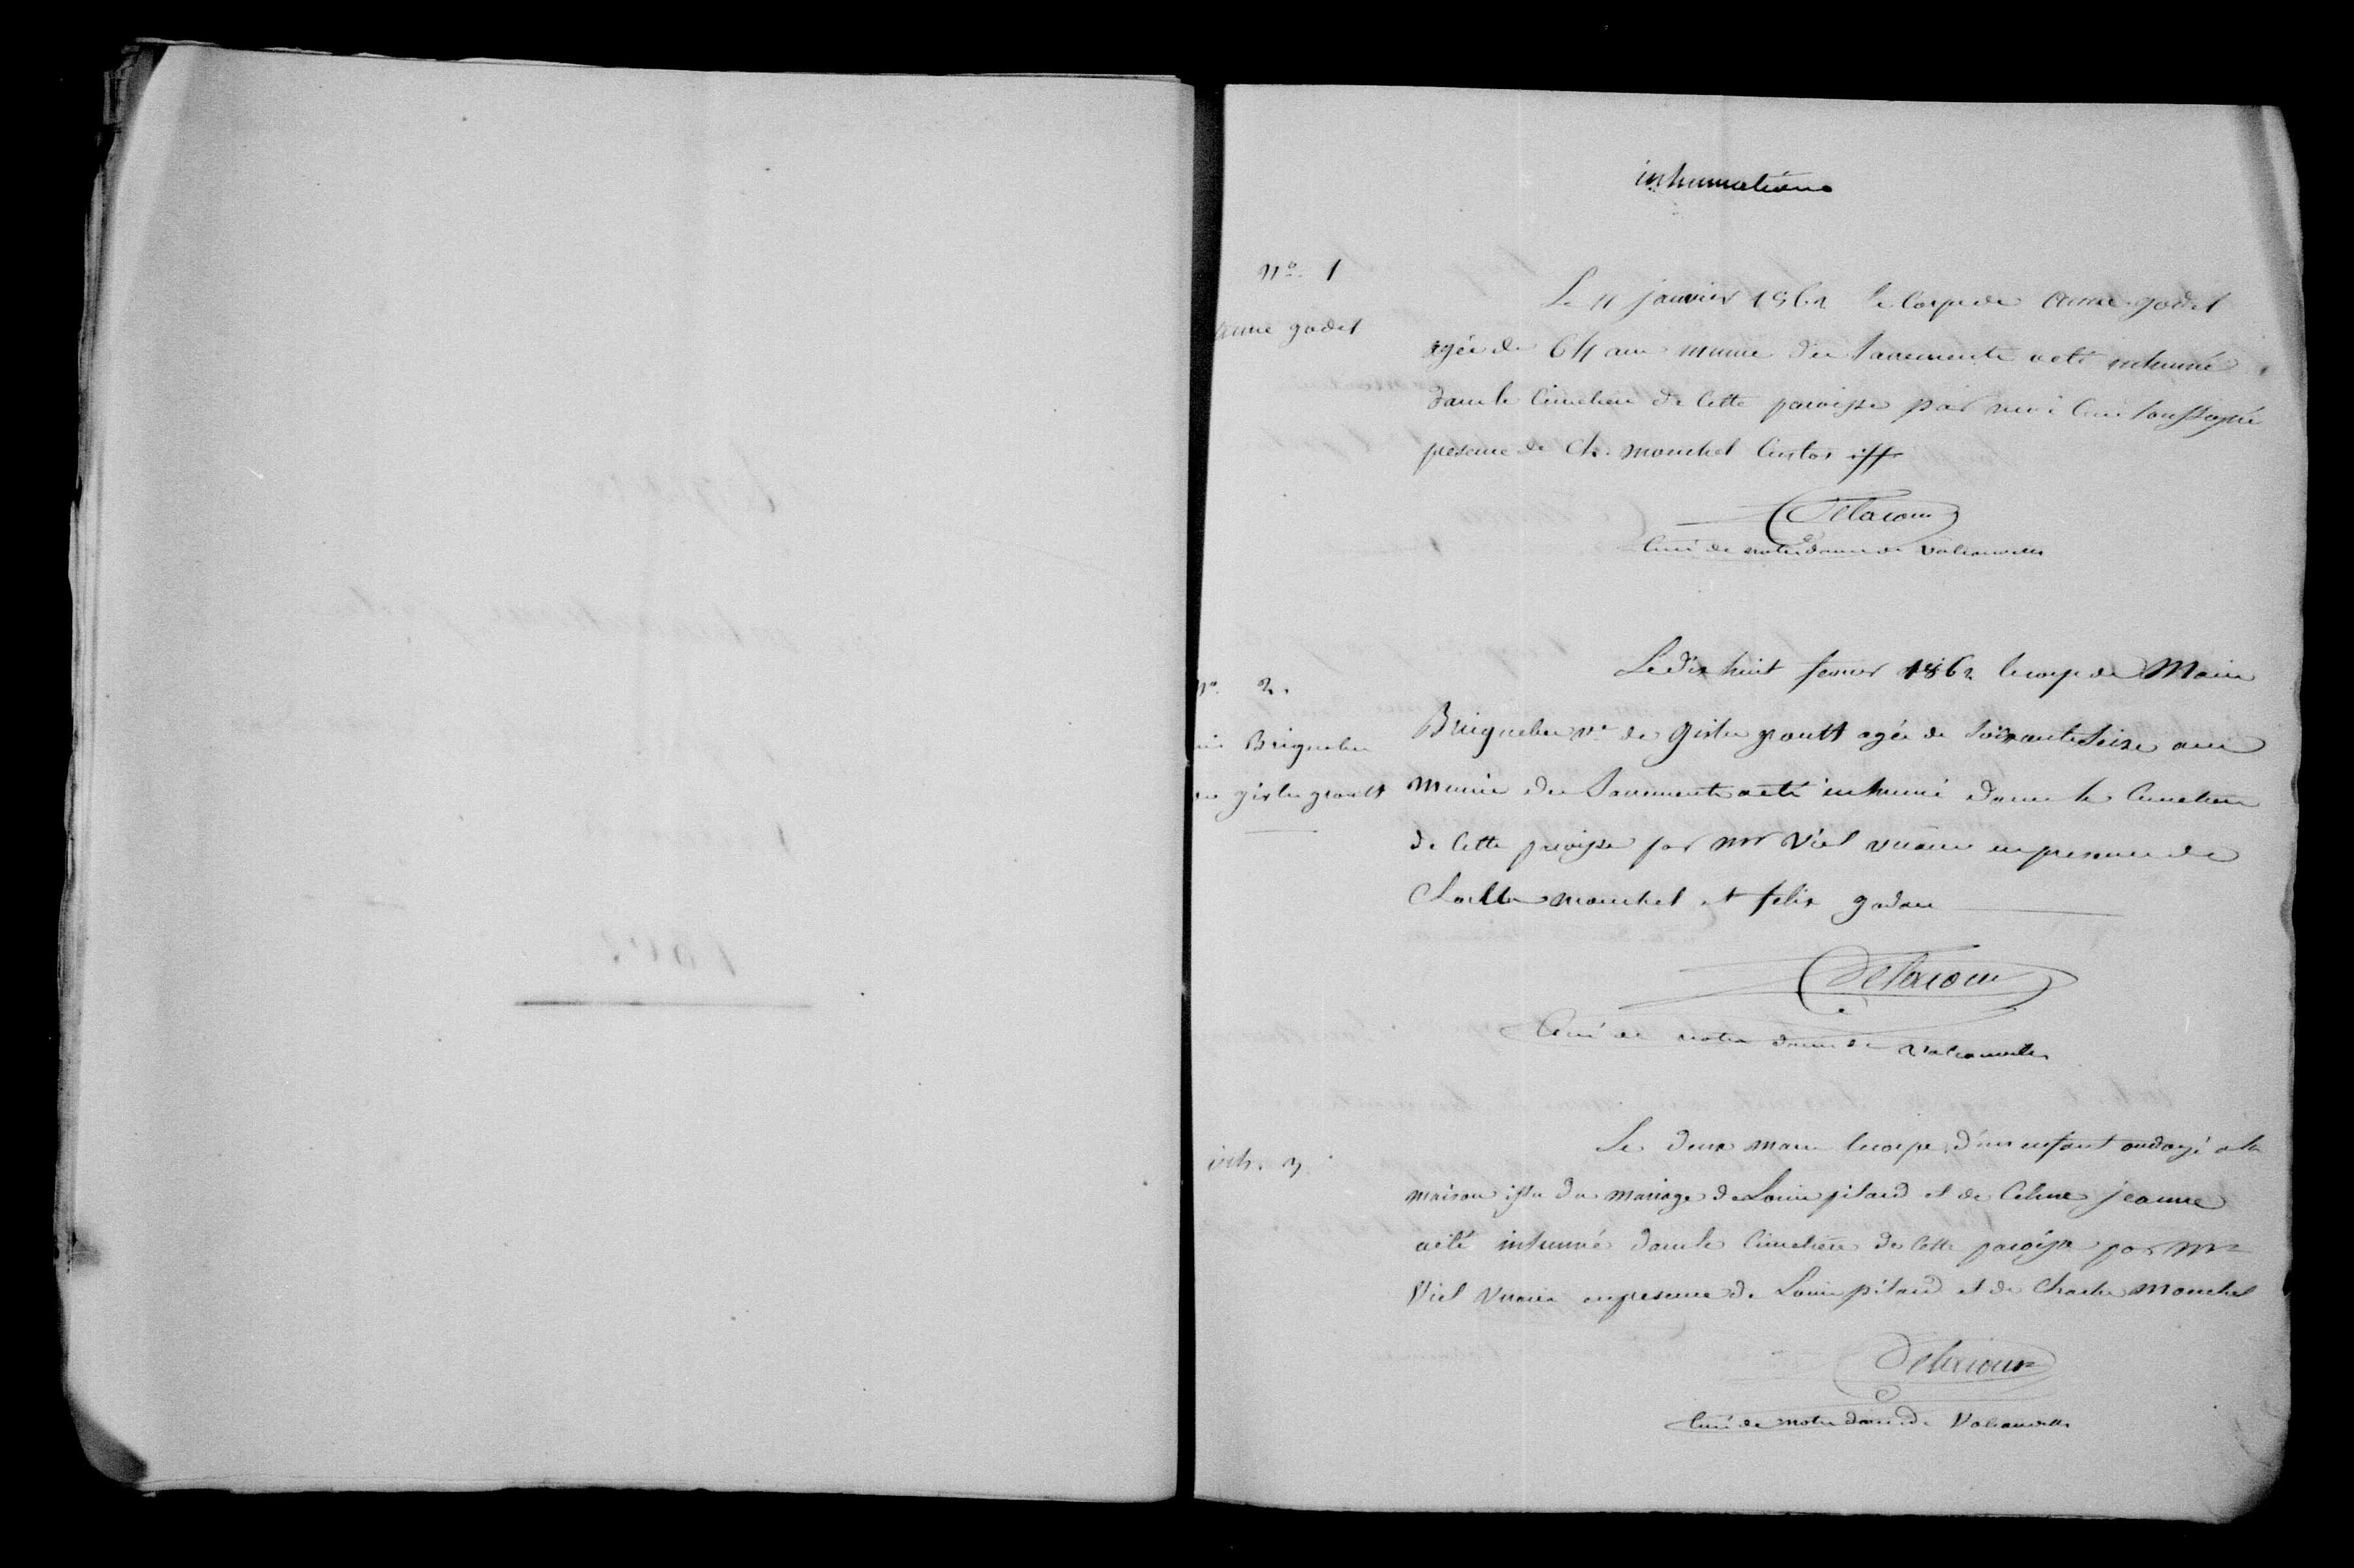 inhumations
No. 1
anne godel
Le 4 janvier 1862 le corps de anne godel
agée de 64 ans munie des Sacrements a eté inhumé
dans le cimetiere de cette paroisse par moi Curé soussigné
presence de Ch. mouchel Custos
Delacour
Curé de notre dame de Valcanville
no. 2.
Briquebec
gisles groult
Le dix huit fevrier 1862 le corps de Marie
Briquebec ve de gisles groult agée de soixante seize ans
munie des Sacrements a eté inhumé dans le Cimetiere
de cette paroisse par mr Viel vicaire en presence de
Charles mouchel et felix godan
Delacour
Curé de notre dame de Valcanville
inh. 3
Le deux mars le corps d'un enfant ondoyé a la
maison issu du mariage de Louis pitard et de Celine jeanne
a été inhumé dans le Cimetiere de cette paroisse par Mr
Viel Vicaire en presence de Louis pitard et de Charles Mouchel
Delacour
Curé de notre dame de Valcanville